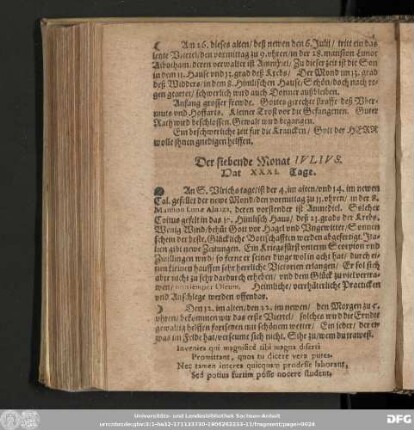 ☾ An 26. dieses alten / deß newen den 6. Julij / tritt ein das
letzte Viertel / den vormittag zu 9. vhren / in der 28. mansion Lunae
Albocham, deren verwalter ist Amnixiel. Zu dieser zeit ist die Son
in dem 11. Hause vnd 15. grad deß Krebs / Der Mond im 15. grad
deß Widders / in dem 8. Himlischen Hause / Schön / doch nach re-
gen geartet / schwerlich wird auch Donner außbleiben.
Anfang grosser frewde. Gottes gerechte straffe deß Vber-
muts vnd Hoffarts. Kleiner Trost vor die Gefangenen. Guter
Rath wird beschlossen. Gewalt wird begangen.
Ein beschwerliche zeit für die Krancken / Gott der HERR
wolle ihnen gnedigen helffen.
Der siebende Monat IVLIVS.
Hat XXXI. Tage.
An S. Vlrichs tage / ist der 4. im alten / vnd 14. im newen
Cal. gesellet der newe Mond / den vormittag zu 11. vhren / in der 8.
Mansion Lunae, deren vorsteher ist Amnediel. Solcher
Coitus gefelt in das 10. Himlisch Haus / deß 21. grads der Krebs.
Wenig Wind / behüt Gott vor Hagel vnd Vngewitter / Sonnen
schein der beste. Glückliche Botschafften werden abgefertigt. Ita-
lien gibt newe Zeitungen. Ein Kriegsfürst vnterm Scorpion vnd
Zwillingen wird / so ferne er seiner dinge wol in acht hat / durch ei-
nen kleinen hauffen sehr herrliche Victorien erlangen / Er sol sich
aber nicht zu sehr dardurch erheben / vnd dem Glück zu viel vertra-
wen / Heimliche / verhälterliche Practicken
vnd Anschlege werden offenbar.
☽ Den 12. im alten / den 22. im newen / den Morgen zu
vhren / bekommen wir das erste Viertel / solches wird die Erndte
gewaltig helffen fortsetzen mit schönem wetter / Ein jeder / der et-
was im Felde hat / verseume sich nicht. Sihe zu / wem du trawest.
Invenies qui magnificè sibi magna diserti
Promittant, quos tu dicere vera putes.
Nec tamen interea quicquam prodesse laborant,
Sed potius furtim posse nocere student.
Universitäts- und Landesbibliothek Sachsen-Anhalt
DFG